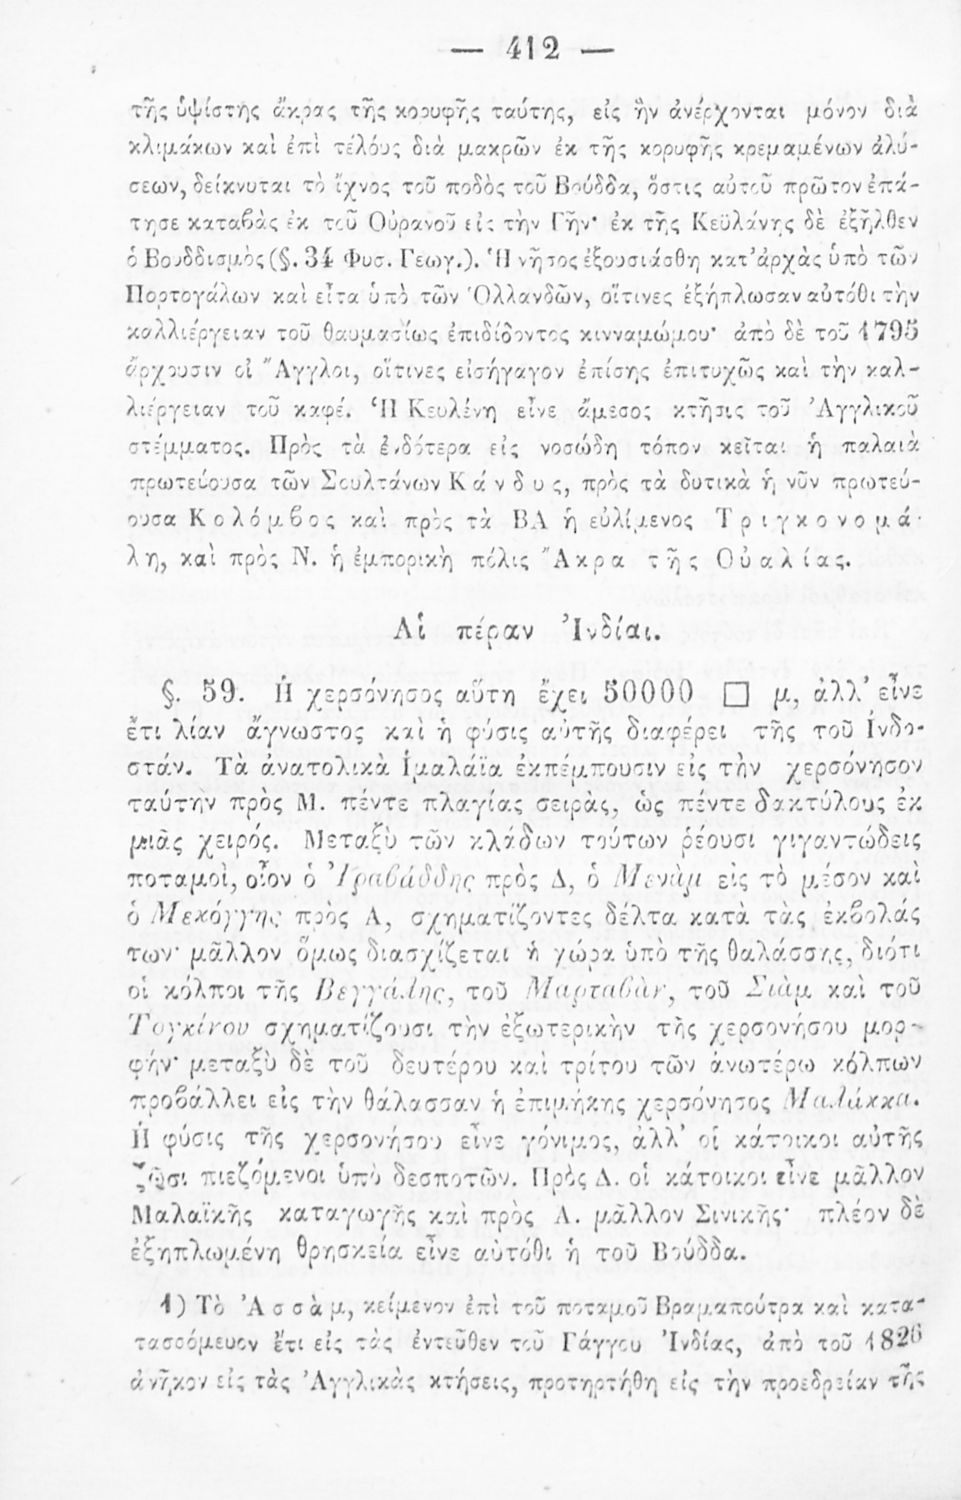 — 412 —
τῆς ὑψίστης ἄκρας τῆς κορυφῆς ταύτης, εἰς ἣν ἀνέρχονται μόνον διὰ
κλιμάκων καὶ ἐπὶ τέλους διὰ μακρῶν ἐκ τῆς κορυφῆς κρεμαμένων ἁλύ-
σεων, δείκνυται τὸ ἴχνος τοῦ ποδὸς τοῦ Βούδδα, ὅστις αὐτοῦ πρῶτον ἐπά-
τησε καταβὰς ἐκ τοῦ Οὐρανοῦ εἰς τὴν Γῆν· ἐκ τῆς Κεϋλάνης δὲ ἐξῆλθεν
ὁ Βουδδισμὸς (§. 34 Φυσ. Γεωγ.). Ἡ νῆσος ἐξουσιάσθη κατ' ἀρχὰς ὑπὸ τῶν
Πορτογάλων καὶ εἶτα ὑπὸ τῶν Ὁλλανδῶν, οἵτινες ἐξήπλωσαν αὐτόθι τὴν
καλλιέργειαν τοῦ θαυμασίως ἐπιδίδοντος κινναμώμου· ἀπὸ δὲ τοῦ 1795
ἄρχουσιν οἱ Ἄγγλοι, οἵτινες εἰσήγαγον ἐπίσης ἐπιτυχῶς καὶ τὴν καλ-
λιέργειαν τοῦ καφέ. Ἡ Κευλένη εἶνε ἄμεσος κτῆσις τοῦ Ἀγγλικοῦ
στέμματος. Πρὸς τὰ ἐνδότερα εἰς νοσώδη τόπον κεῖται ἡ παλαιὰ
πρωτεύουσα τῶν Σουλτάνων Κάνδυς, πρὸς τὰ δυτικὰ ἡ νῦν πρωτεύ-
ουσα Κολόμβος καὶ πρὸς τὰ ΒΑ ἡ εὐλίμενος Τριγκονομά-
λη, καὶ πρὸς Ν. ἡ ἐμπορικὴ πόλις Ἄκρα τῆς Οὐαλίας.
Αἱ πέραν Ἰνδίαι.
§. 59. Ἡ χερσόνησος αὕτη ἔχει 50000 □ μ, ἀλλ' εἶνε
ἔτι λίαν ἄγνωστος καὶ ἡ φύσις αὐτῆς διαφέρει τῆς τοῦ Ἰνδο-
στάν. Τὰ ἀνατολικὰ Ἱμαλάϊα ἐκπέμπουσιν εἰς τὴν χερσόνησον
ταύτην πρὸς Μ. πέντε πλαγίας σειρὰς, ὡς πέντε δακτύλους ἐκ
μιᾶς χειρός. Μεταξὺ τῶν κλάδων τούτων ῥέουσι γιγαντώδεις
ποταμοὶ, οἷον ὁ Ἰραβάδδης πρὸς Δ, ὁ Μενὰμ εἰς τὸ μέσον καὶ
ὁ Μεκόγγης πρὸς Α, σχηματίζοντες δέλτα κατὰ τὰς ἐκβολάς
των· μᾶλλον ὅμως διασχίζεται ἡ χώρα ὑπὸ τῆς θαλάσσης, διότι
οἱ κόλποι τῆς Βεγγάλης, τοῦ Μαρταβὰν, τοῦ Σιὰμ καὶ τοῦ
Τογκίνου σχηματίζουσι τὴν ἐξωτερικὴν τῆς χερσονήσου μορ-
φήν· μεταξὺ δὲ τοῦ δευτέρου καὶ τρίτου τῶν ἀνωτέρω κόλπων
προβάλλει εἰς τὴν θάλασσαν ἡ ἐπιμήκης χερσόνησος Μαλάκκα.
Ἡ φύσις τῆς χερσονήσου εἶνε γόνιμος, ἀλλ' οἱ κάτοικοι αὐτῆς
ζῶσι πιεζόμενοι ὑπὸ δεσποτῶν. Πρὸς Δ. οἱ κάτοικοι εἶνε μᾶλλον
Μαλαϊκῆς καταγωγῆς καὶ πρὸς Α. μᾶλλον Σινικῆς· πλέον δὲ
ἐξηπλωμένη θρησκεία εἶνε αὐτόθι ἡ τοῦ Βούδδα.
1) Τὸ Ἀσσὰμ, κείμενον ἐπὶ τοῦ ποταμοῦ Βραμαπούτρα καὶ κατα-
τασσόμενον ἔτι εἰς τὰς ἐντεῦθεν τοῦ Γάγγου Ἰνδίας, ἀπὸ τοῦ 1826
ἀνῆκον εἰς τὰς Ἀγγλικὰς κτήσεις, προτηρτήθη εἰς τὴν προεδρείαν τῆς